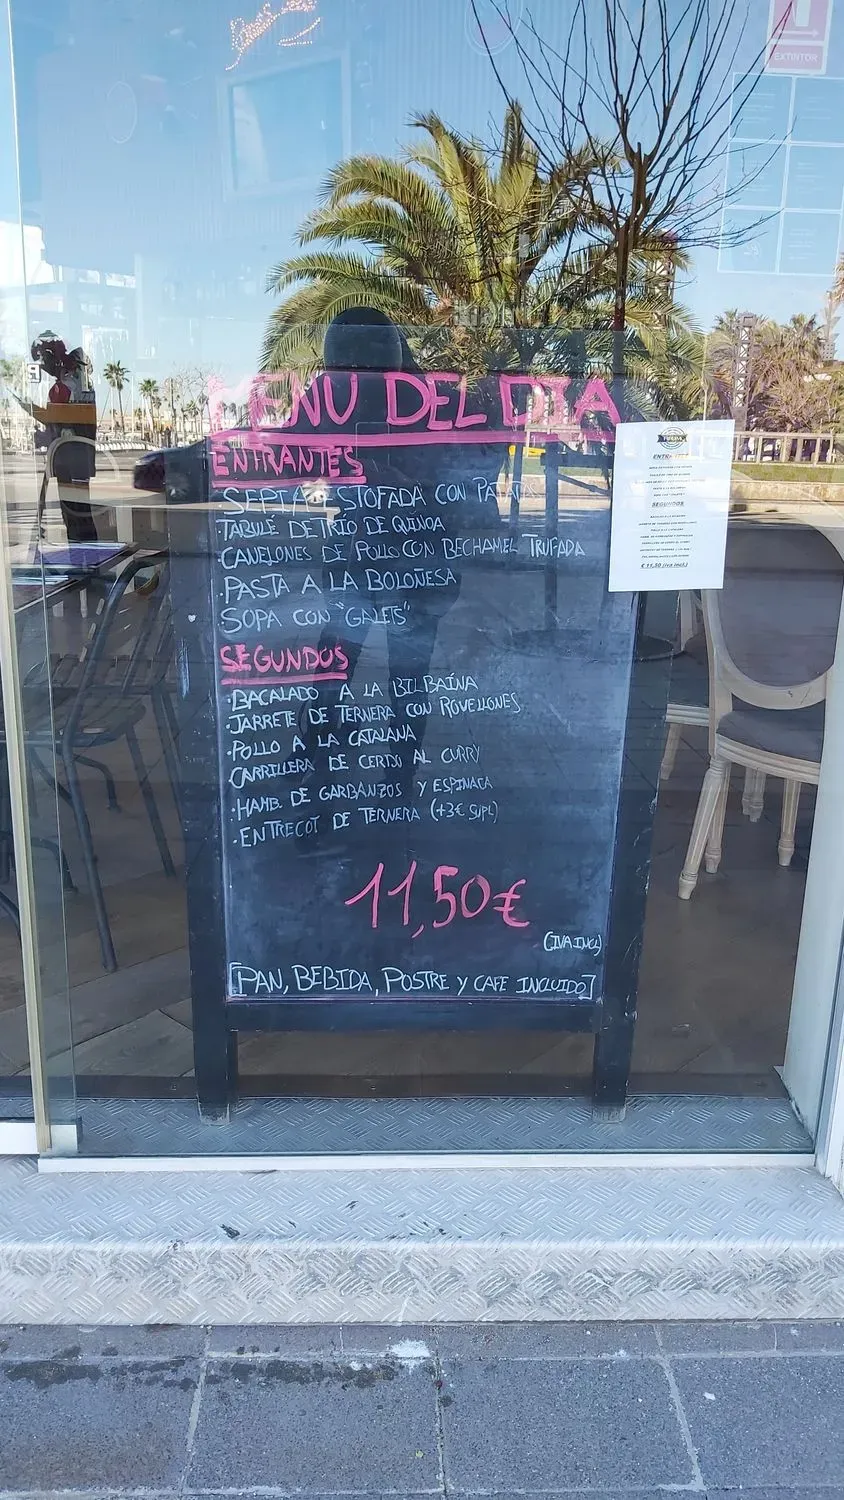 MENU DEL DIA
ENTRANTES
·SEPIA ESTOFADA CON PATATA
·TABULÉ DE TRIO DE QUINOA
·CANELONES DE POLLO CON BECHAMEL TRUFADA
·PASTA A LA BOLOÑESA
·SOPA CON "GALETS"
SEGUNDOS
·BACALADO A LA BILBAÍNA
·JARRETE DE TERNERA CON ROVELLONES
·POLLO A LA CATALANA
CARRILLERA DE CERDO AL CURRY
·HAMB. DE GARBANZOS Y ESPINACA
·ENTRECOT DE TERNERA (+3€ SUPL)
11,50€
(IVA INCL)
[PAN, BEBIDA, POSTRE Y CAFE INCLUIDO]
ENTRANTES
SEGUNDOS
€ 11,50 (iva incl.)
EXTINTOR